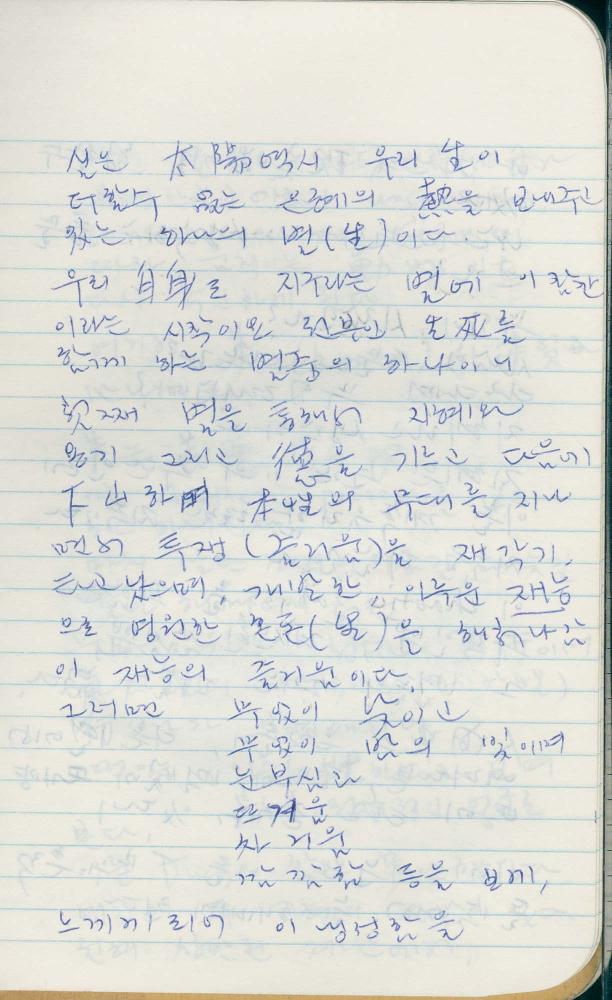 실은 太陽역시 우리 生이
더할수 없는 은혜의 熱을 보내주고
있는 하나의 별(星)이다.
우리 自身도 지구라는 별에
이라는 시작이요 生死를
함께 하는 별중의 하나이니
첫째 별을 통해서 지혜와
용기 그리고 德을 기르고 다음에
下山하여 本性의 무대를 지나
면서 투쟁(즐거움)을 제각기
타고 났으며, 개발한, 이루운 재능
으로 영원한 혼돈(늪)을 헤쳐나감
이 재능의 즐거움이다.
그러면 무엇이 낮이고
무엇이 밤의 빛이며
눈부심과
뜨거움
차거움
깜깜함 등을 보게,
느끼게 되어 이 냉정함을